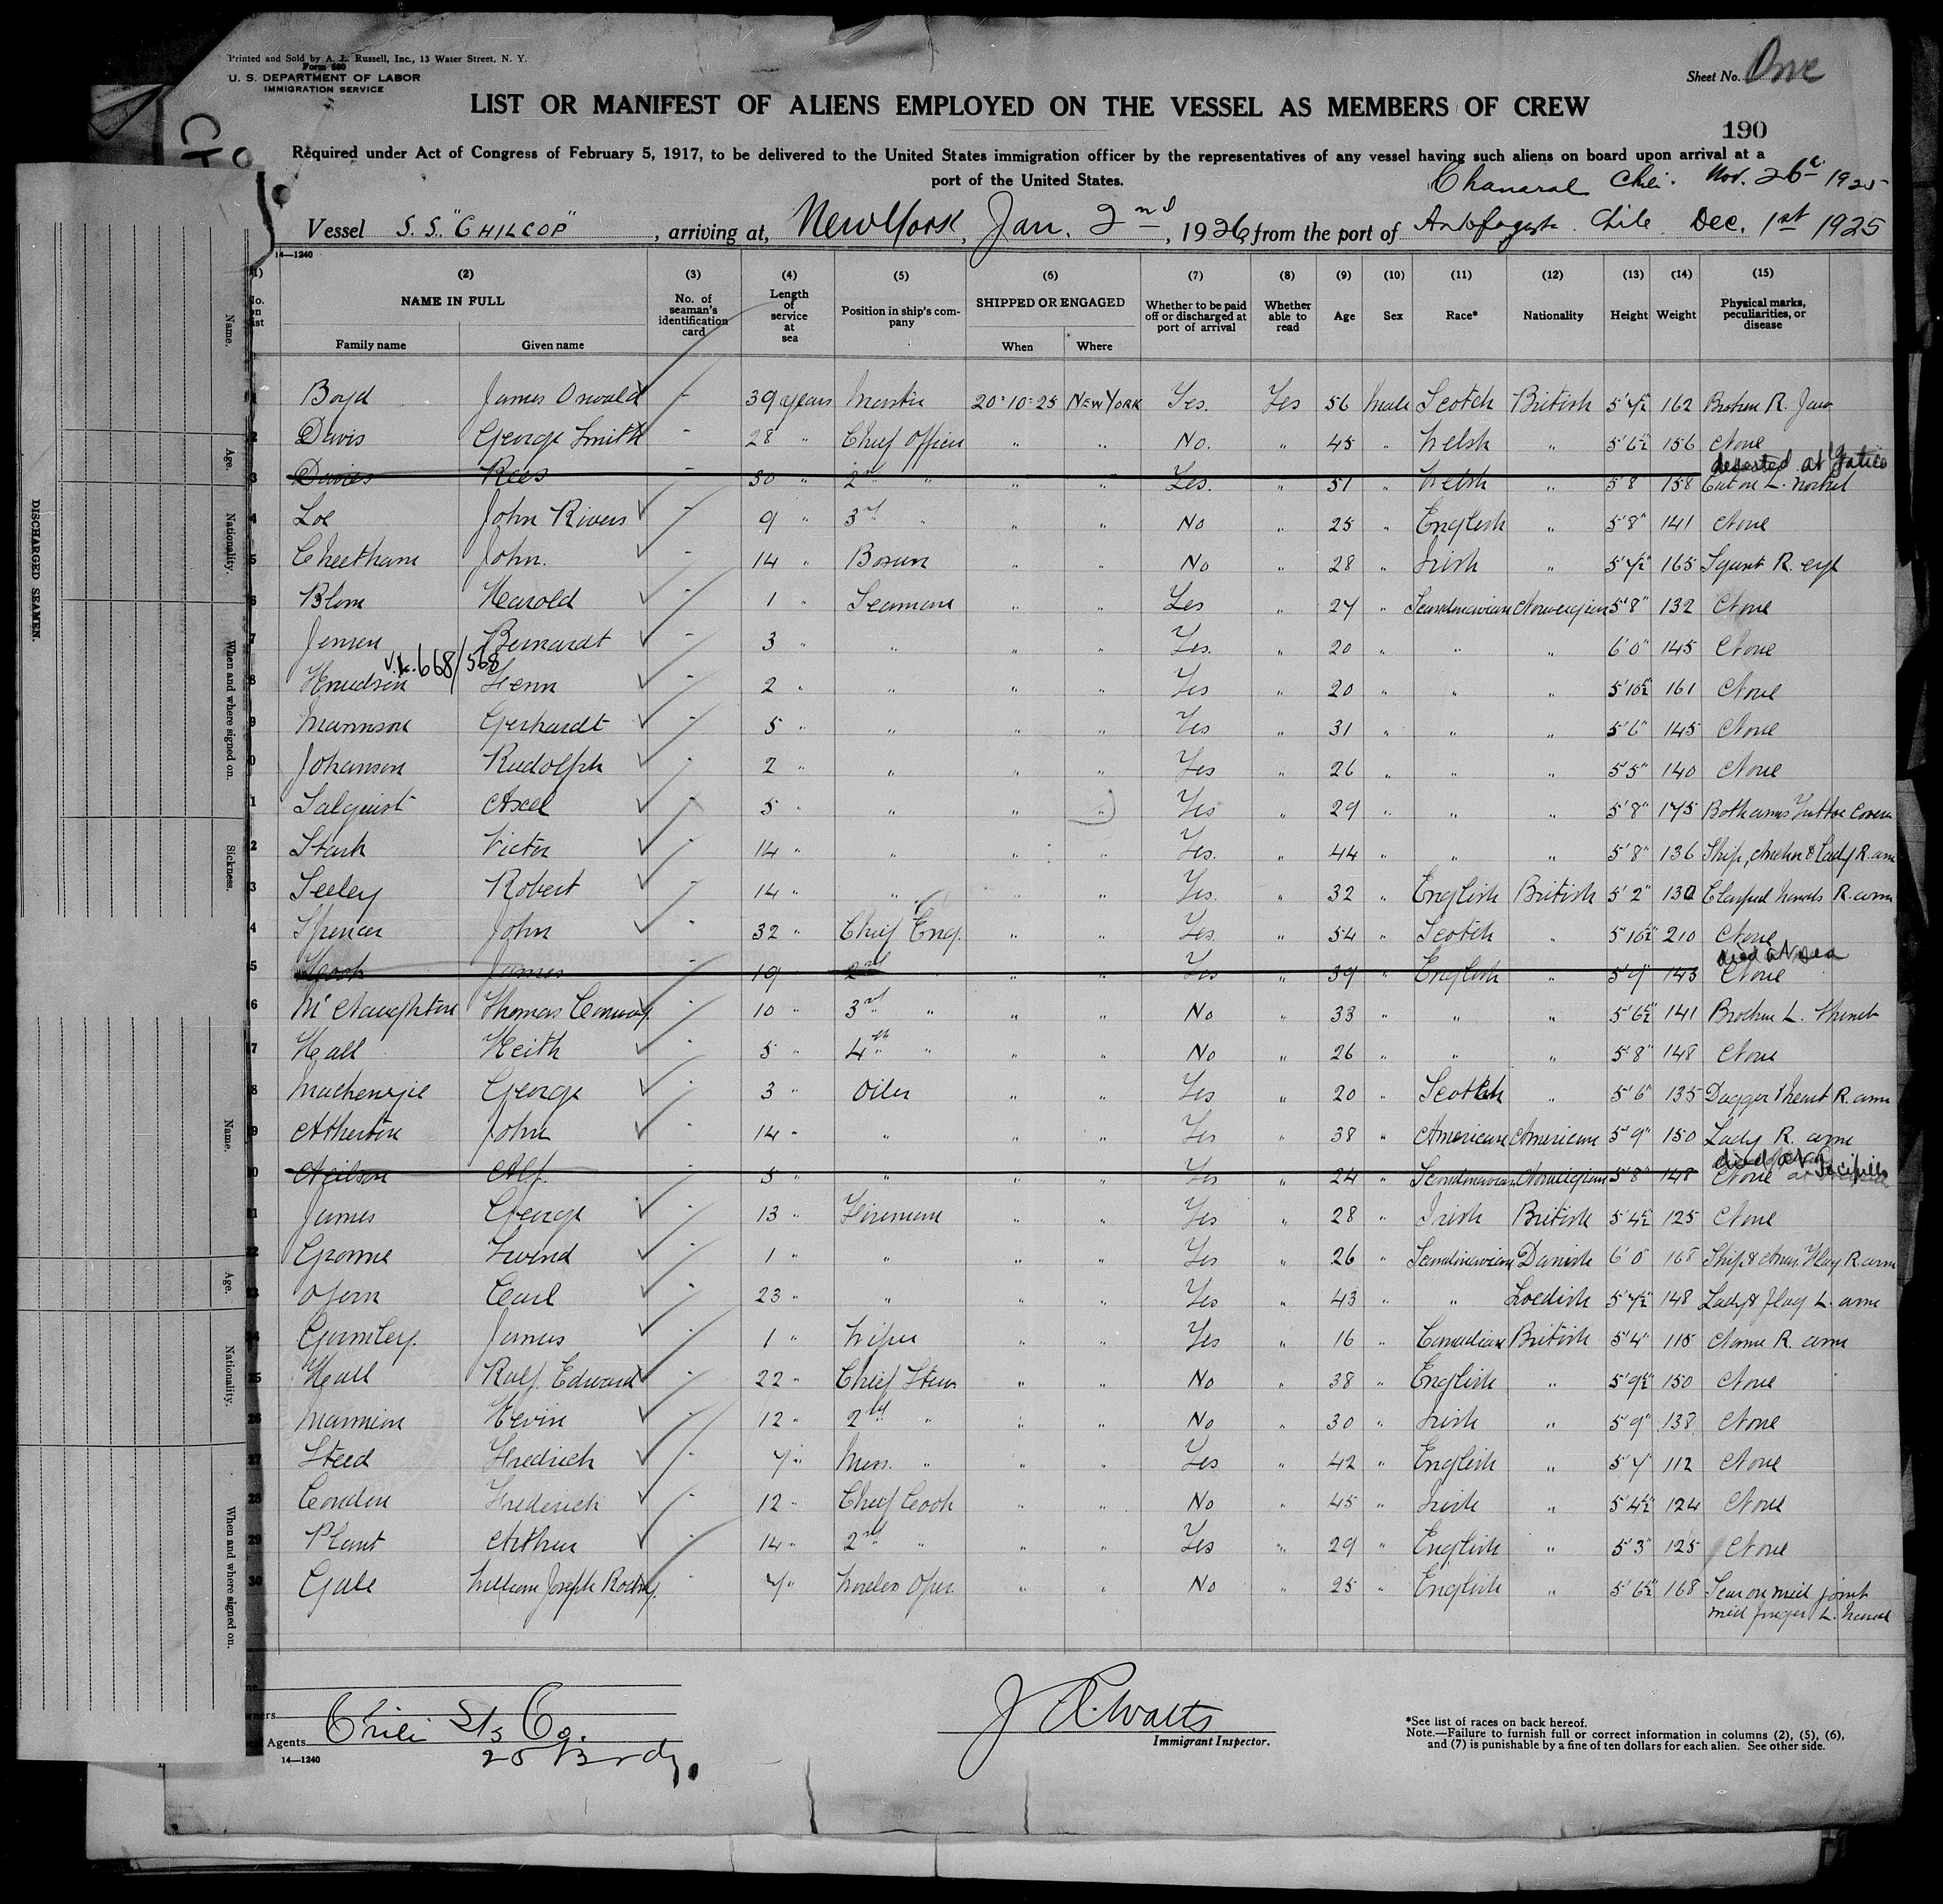 Printed and Sold by A. L. Russell, Inc., 13 Water Street, N. Y.
Form 680
U. S. DEPARTMENT OF LABOR
IMMIGRATION SERVICE
Sheet No. One
LIST OR MANIFEST OF ALIENS EMPLOYED ON THE VESSEL AS MEMBERS OF CREW
190
Required under Act of Congress of February 5, 1917, to be delivered to the United States immigration officer by the representatives of any vessel having such aliens on board upon arrival at a
port of the United States.
Chanaral Chli. Nov. 26 1925
Vessel S. S. "CHILCOP", arriving at, New York, Jan. 2nd, 1926, from the port of Antofagasta Chile Dec. 1st 1925
14—1240
(1) (2) (3) (4) (5) (6) (7) (8) (9) (10) (11) (12) (13) (14) (15)
No. on list NAME IN FULL Family name Given name No. of seaman's identification card Length of service at sea Position in ship's company SHIPPED OR ENGAGED When Where Whether to be paid off or discharged at port of arrival Whether able to read Age Sex Race* Nationality Height Weight Physical marks, peculiarities, or disease
Boyd James Oswald - 39 years Master 20-10-25 NEW YORK Yes. Yes 56 Male Scotch British 5'7½" 162 Broken R. Jaw
2 Davis George Smith - 28 " Chief Officer " " No. " 45 " Welsh " 5'6½ 156 None
deserted at Gatico
3 Davies Rees - 30 " 2nd " " " Yes. " 51 " Welsh " 5'8 158 Cut on L.
4 Loe John Rivers - 9 " 3rd " " " No " 25 " English " 5'8" 141 None
5 Cheetham John. - 14 " Bosun " " No " 28 " Irish " 5'7½" 165 Squint R. eye
6 Blom Harold - 1 " Seamann " " Yes " 27 " Scandinavian Norwegian 5'8" 132 None
7 Jensen Bernardt - 3 " " " " Yes. " 20 " " " 6'0" 145 None
V.L. 668/568
8 Knudsen Henn - 2 " " " " Yes " 20 " " " 5'10½ 161 None
9 Mannson Gerhardt - 5 " " " " Yes " 31 " " " 5'6" 145 None
0 Johanson Rudolph - 2 " " " " Yes " 26 " " " 5'5" 140 None
1 Salquist Axel - 5 " " " " Yes " 29 " " " 5'8" 175 Both arms Tattoe Coven
2 Stark Victor - 14 " " " " Yes. " 44 " " " 5'8" 136 Ship, Anchor & Lady R. arm
3 Seeley Robert - 14 " " " " Yes. " 32 " English British 5'2" 130 Clasped hands R. arm
4 Spencer John - 32 " Chief Eng. " " Yes. " 54 " Scotch " 5'10½" 210 None
died at Sea
5 James - 19 " 2nd " " Yes " 39 " English " 5'9" 143 None
6 McNaughton Thomas Conway - 10 " 3rd " " " No " 33 " " " 5'6½" 141 Broken L. Thumb
7 Hall Keith - 5 " 4th " " " No " 26 " " " 5'8" 148 None
8 Mackenzie George - 3 " Oiler " " Yes " 20 " Scotch " 5'6" 135 Dagger & heart R. arm
9 Atherton John - 14 " " " " Yes " 38 " American American 5'9" 150 Lady R. arm
0 Neilson Alf. - 5 " " " " Yes " 24 " Scandinavian Norwegian 5'8" 148 None
1 James George - 13 " Fireman " " Yes " 28 " Irish British 5'4½" 125 None
22 Gromme Svend - 1 " " " " Yes " 26 " Scandinavian Danish 6'0" 168 Ship & Amer. Flag R. arm
23 Carl - 23 " " " " Yes " 43 " " Swedish 5'7½" 148 Lady & flag L. arm
24 Gormley. James - 1 " Wiper " " Yes " 16 " Canadian British 5'4" 115 Name R. arm
25 Hall Ralf. Edward - 22 " Chief Stew " " No " 38 " English " 5'9½" 150 None
26 Mannion Kevin - 12 " 2nd " " " No " 30 " Irish " 5'9" 138 None
27 Steed Fredrich - 7 " Mess. " " " Yes " 42 " English " 5'7" 112 None
28 Condon Frederich - 12 " Chief Cook " " No " 45 " Irish " 5'4½" 124 None
29 Plant Arthur - 14 " 2nd " " " Yes " 29 " English " 5'3" 125 None
30 Gale William Joseph Rodny. - 7 " Wireless Oper. " " No " 25 " English " 5'6½" 168 Scar on mid joint
mid finger L. hand
Agents Chili SS Co.
25 Brdy.
14—1240
J. C. Watts
Immigrant Inspector.
*See list of races on back hereof.
Note.—Failure to furnish full or correct information in columns (2), (5), (6),
and (7) is punishable by a fine of ten dollars for each alien. See other side.
DISCHARGED SEAMEN.
Name.
Age.
Nationality.
When and where signed on.
Sickness.
Name.
Age.
Nationality.
When and where signed on.